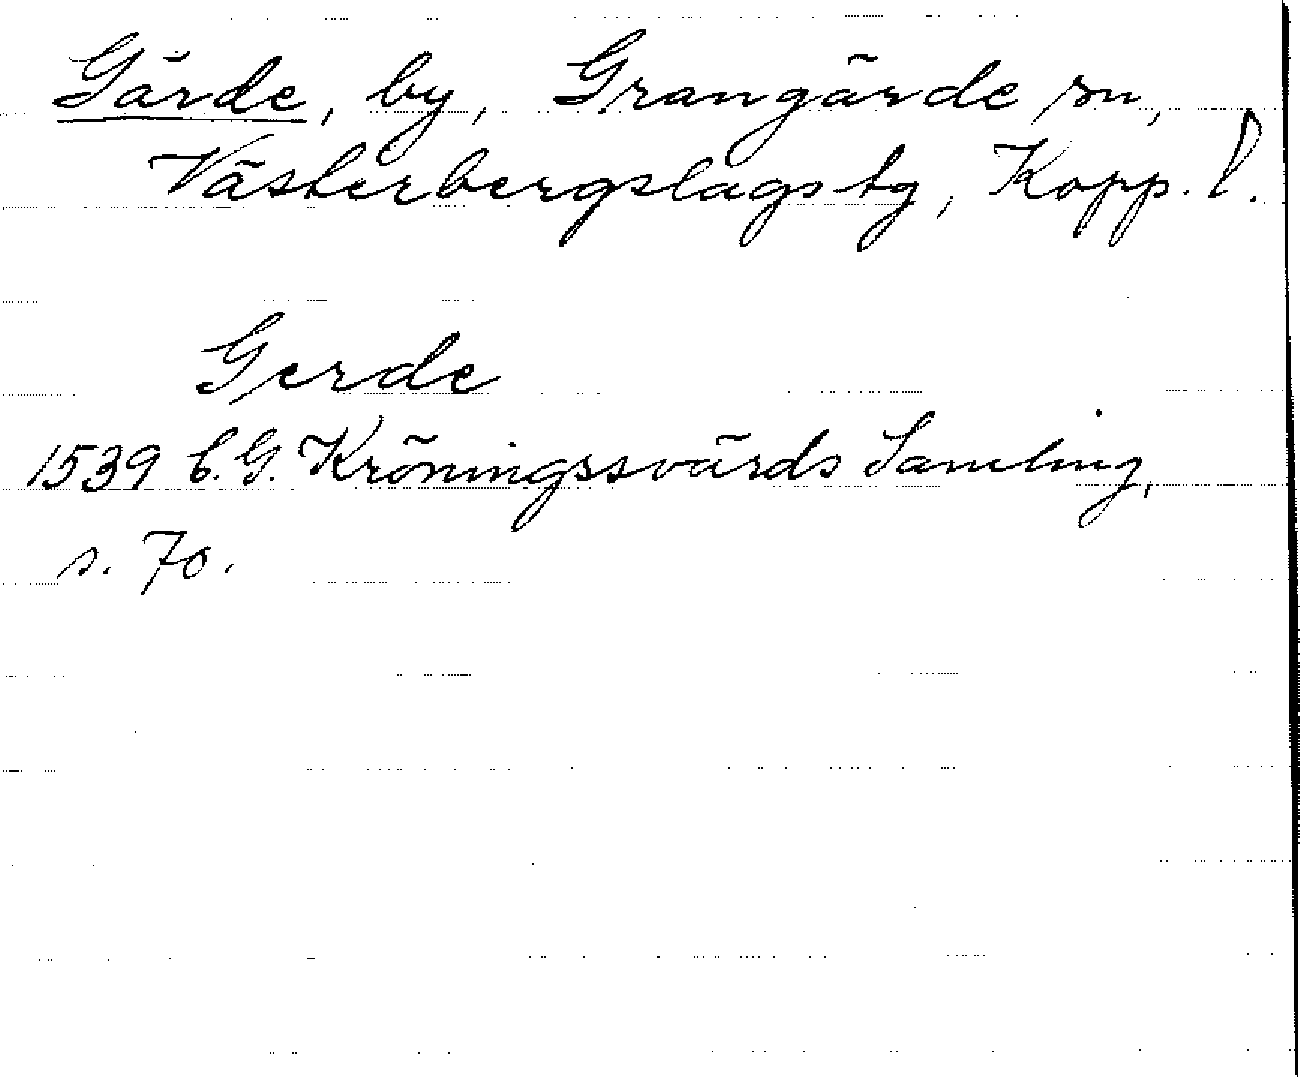 Gärde, by, Grangärde sn,
Västerbergslags tg, Kopp. l.
Gerde
1539 C.G. Kröningssvärds Samling,
s. 70.